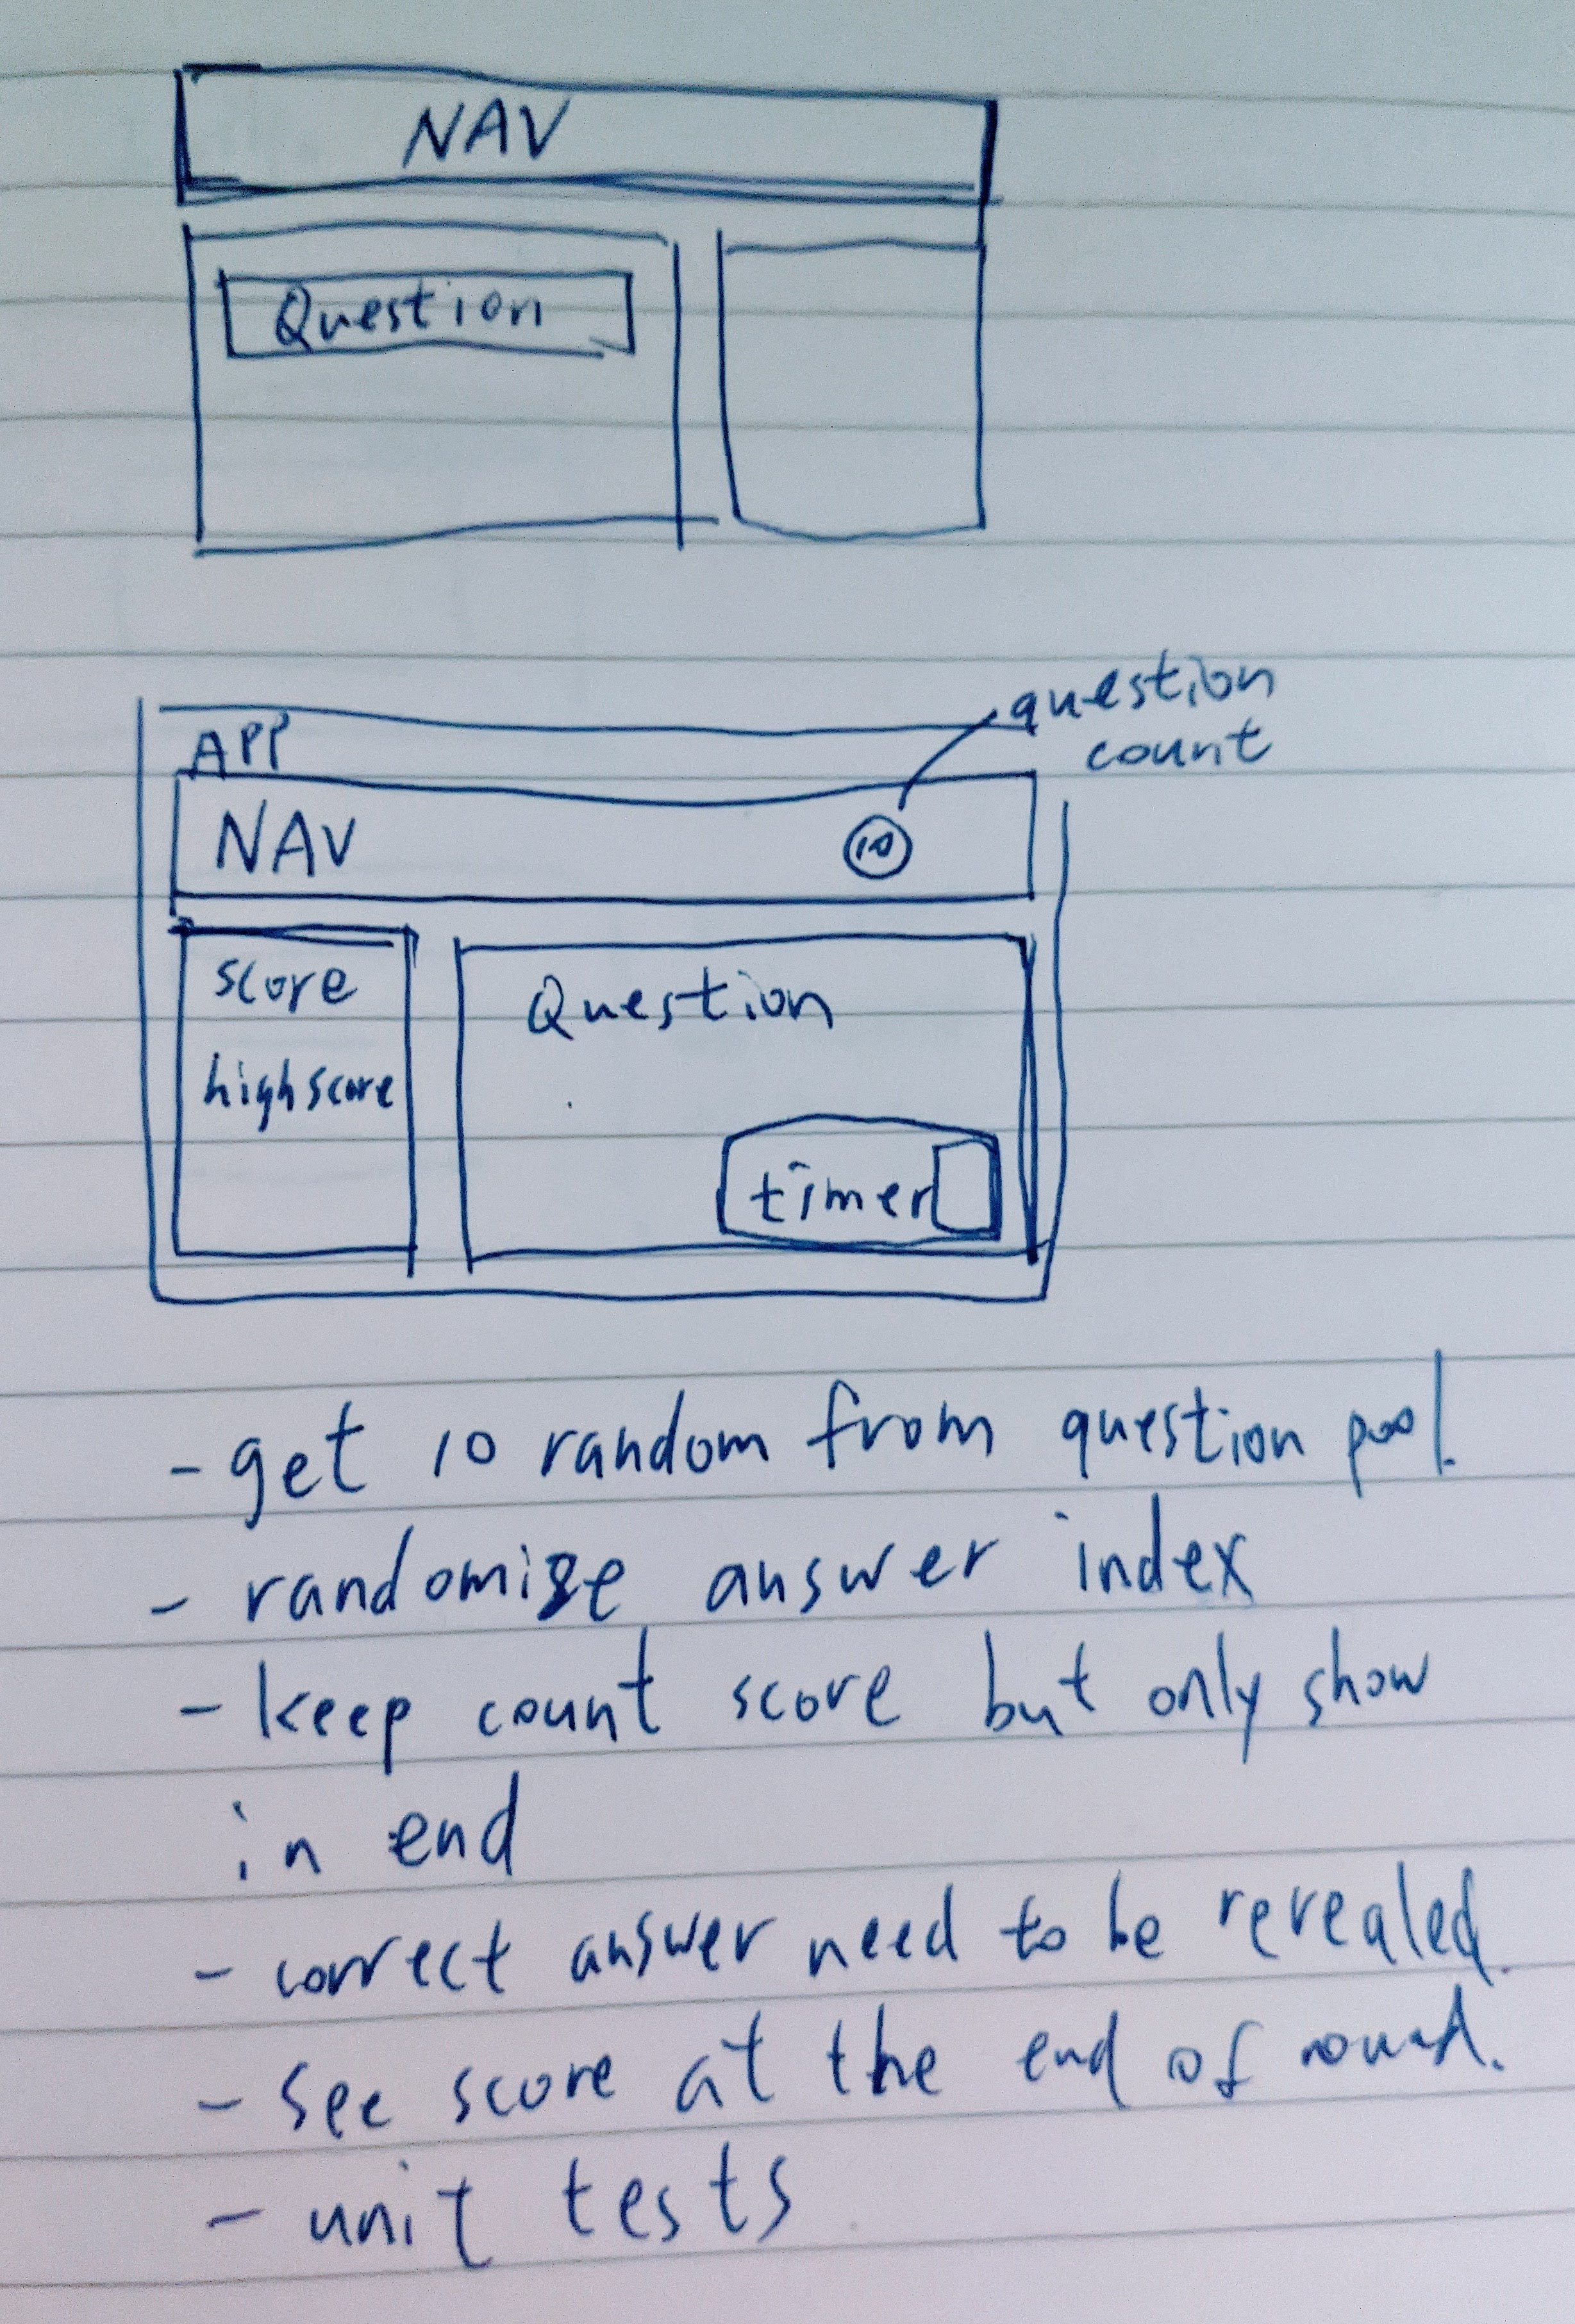 NAV
Question
question
count
APP
NAV
10
score
highscore
Question
timer
- get 10 random from question pool.
- randomize answer index
- keep count score but only show
in end
- correct answer need to be revealed.
- See score at the end of round.
- unit tests